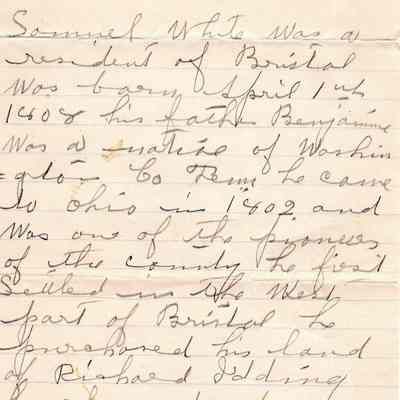 Samuel White was a
resident of Bristol
was born April 1st
1808 his father Benjamine
was a native of Washin
=gton Co Tenn he came
to Ohio in 1802 and
was one of the pioneers
of the county he first
Settled in the West
part of Bristol he
purchased his land
of Richard Idding